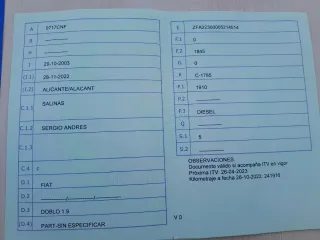 A 0717CNF
B
H
I 29-10-2003
(I.1) 28-11-2022
(I.2) ALICANTE/ALACANT
C.1.1 SALINAS
C.1.2 SERGIO ANDRES
C.1.3
C.4 c
D.1 FIAT
D.2
D.3 DOBLO 1.9
(D.4) PART-SIN ESPECIFICAR
E ZFA22300005214614
F.1 0
F.2 1845
G 0
K C-1793
P.1 1910
P.2
P.3 DIESEL
Q
S.1 5
S.2
OBSERVACIONES:
Documento válido si acompaña ITV en vigor
Próxima ITV: 26-04-2023
Kilometraje a fecha 26-10-2022: 241970
V 0